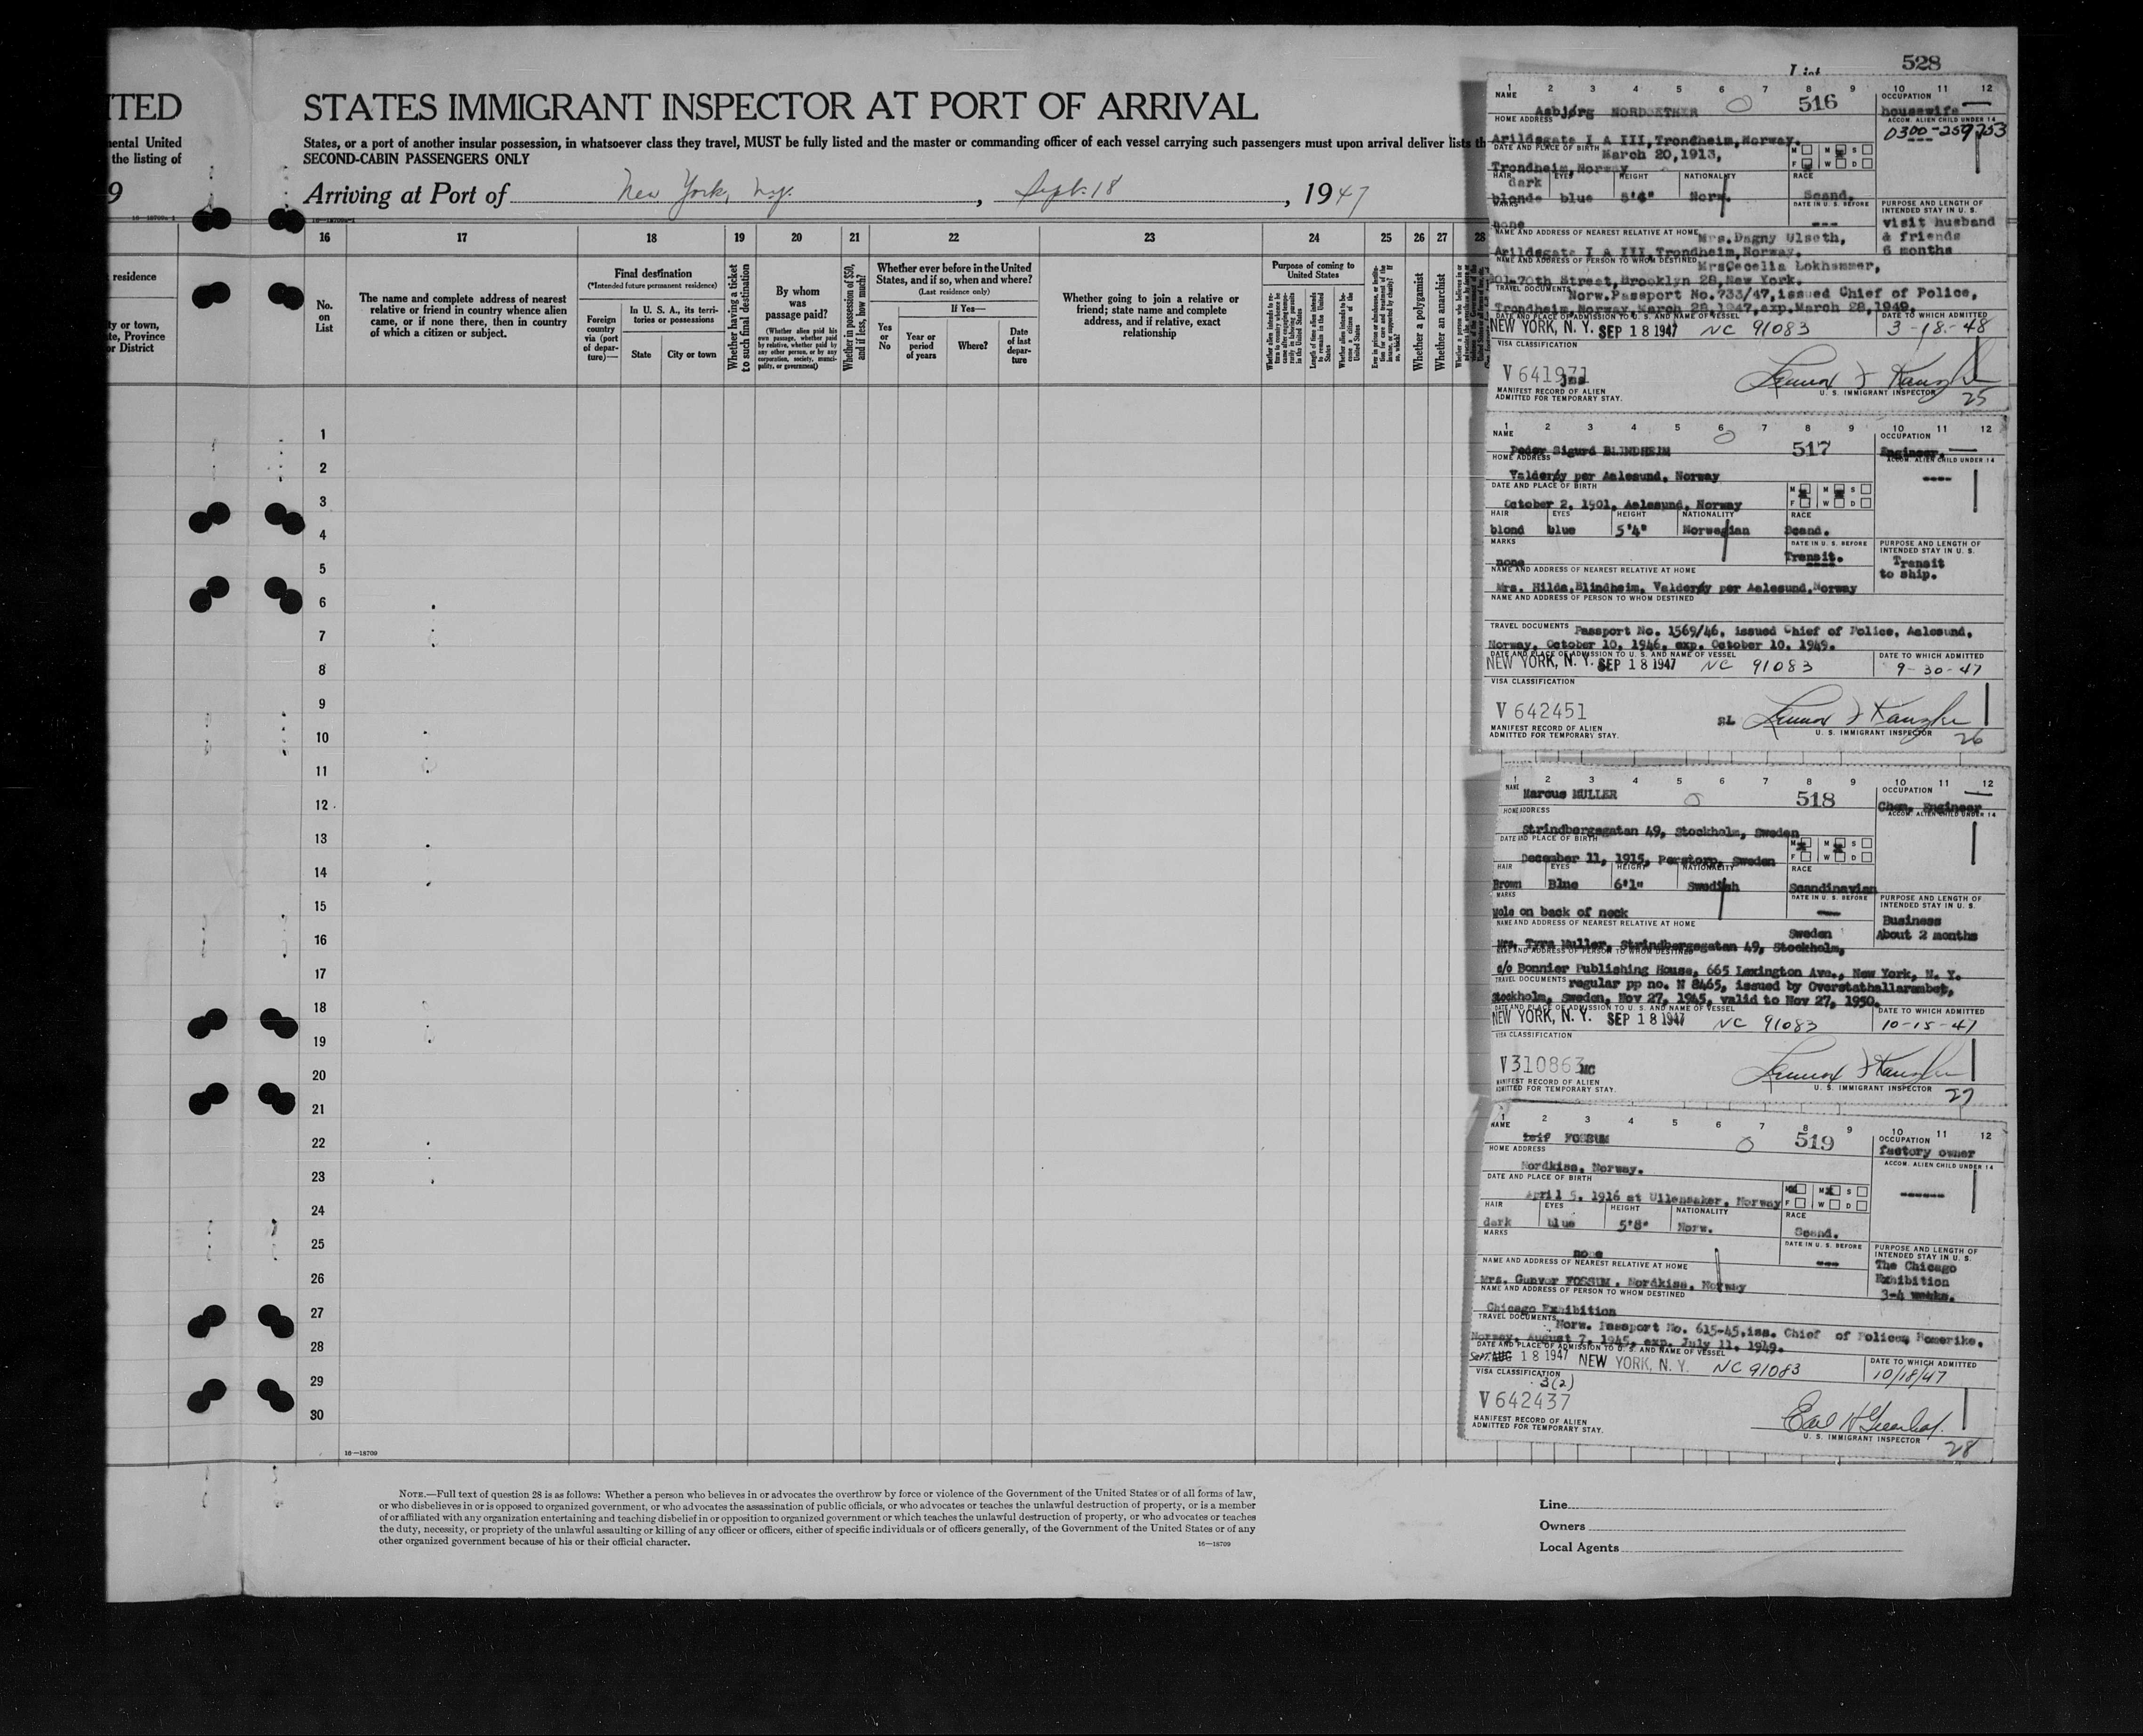 528
List
ITED
STATES IMMIGRANT INSPECTOR AT PORT OF ARRIVAL
nental United
the listing of
States, or a port of another insular possession, in whatsoever class they travel, MUST be fully listed and the master or commanding officer of each vessel carrying such passengers must upon arrival deliver lists th
SECOND-CABIN PASSENGERS ONLY
9
Arriving at Port of New York, N.Y. , Sept. 18 , 1947
16—18709a-1
16 17 18 19 20 21 22 23 24 25 26 27 28
residence
ty or town,
te, Province
or District
No. on List
The name and complete address of nearest relative or friend in country whence alien came, or if none there, then in country of which a citizen or subject.
Final destination
(*Intended future permanent residence)
Foreign country via (port of departure)—
In U. S. A., its territories or possessions
State
City or town
Whether having a ticket to such final destination
By whom was passage paid?
(Whether alien paid his own passage, whether paid by relative, whether paid by any other person, or by any corporation, society, municipality, or government)
Whether in possession of $50, and if less, how much?
Whether ever before in the United States, and if so, when and where?
(Last residence only)
If Yes—
Yes or No
Year or period of years
Where?
Date of last departure
Whether going to join a relative or friend; state name and complete address, and if relative, exact relationship
Purpose of coming to United States
Length of time alien intends to remain in the United States
Whether alien intends to become a citizen of the United States
Whether a polygamist
Whether an anarchist
1
2
3
4
5
6
7
8
9
10
11
12
13
14
15
16
17
18
19
20
21
22
23
24
25
26
27
28
29
30
16—18709
NOTE.—Full text of question 28 is as follows: Whether a person who believes in or advocates the overthrow by force or violence of the Government of the United States or of all forms of law,
or who disbelieves in or is opposed to organized government, or who advocates the assassination of public officials, or who advocates or teaches the unlawful destruction of property, or is a member
of or affiliated with any organization entertaining and teaching disbelief in or opposition to organized government or which teaches the unlawful destruction of property, or who advocates or teaches
the duty, necessity, or propriety of the unlawful assaulting or killing of any officer or officers, either of specific individuals or of officers generally, of the Government of the United States or of any
other organized government because of his or their official character.
16—18709
Line
Owners
Local Agents
1 2 3 4 5 6 7 8 9 10 11 12
NAME
Asbjørg NORDSETHER
516
OCCUPATION
housewife
HOME ADDRESS
ACCOM. ALIEN CHILD UNDER 14
0300-259753
Arildsgate I A III, Trondheim, Norway.
DATE AND PLACE OF BIRTH
March 20, 1913,
Trondheim, Norway
M M S
F W D
HAIR EYES HEIGHT NATIONALITY RACE
dark
blonde blue 5'4" Norw. Scand.
MARKS
none
DATE IN U. S. BEFORE
---
PURPOSE AND LENGTH OF INTENDED STAY IN U. S.
visit husband
& friends
6 months
NAME AND ADDRESS OF NEAREST RELATIVE AT HOME
Mrs. Dagny Ulseth,
Arildsgate I A III, Trondheim, Norway.
NAME AND ADDRESS OF PERSON TO WHOM DESTINED
Mrs Cecelia Lokhammer,
70th Street, Brooklyn 28, New York.
TRAVEL DOCUMENTS
Norw. Passport No. 733/47, issued Chief of Police,
Trondheim, Norway, March 28, 1947, exp. March 28, 1949.
DATE AND PLACE OF ADMISSION TO U. S. AND NAME OF VESSEL
DATE TO WHICH ADMITTED
NEW YORK, N. Y. SEP 18 1947 NC 91083 3-18-48
VISA CLASSIFICATION
V 641971
MANIFEST RECORD OF ALIEN
ADMITTED FOR TEMPORARY STAY.
U. S. IMMIGRANT INSPECTOR
25
1 2 3 4 5 6 7 8 9 10 11 12
NAME
Peder Sigurd BLINDHEIM
517
OCCUPATION
Engineer.
HOME ADDRESS
ACCOM. ALIEN CHILD UNDER 14
----
Valderøy per Aalesund, Norway
DATE AND PLACE OF BIRTH
October 2, 1901, Aalesund, Norway
M M S
F W D
HAIR EYES HEIGHT NATIONALITY RACE
blond blue 5'4" Norwegian Scand.
MARKS
none
DATE IN U. S. BEFORE
Transit.
PURPOSE AND LENGTH OF INTENDED STAY IN U. S.
Transit
to ship.
NAME AND ADDRESS OF NEAREST RELATIVE AT HOME
Mrs. Hilda, Blindheim, Valderøy per Aalesund, Norway
NAME AND ADDRESS OF PERSON TO WHOM DESTINED
TRAVEL DOCUMENTS
Passport No. 1569/46, issued Chief of Police, Aalesund,
Norway, October 10, 1946, exp. October 10, 1949.
DATE AND PLACE OF ADMISSION TO U. S. AND NAME OF VESSEL
DATE TO WHICH ADMITTED
NEW YORK, N. Y. SEP 18 1947 NC 91083 9-30-47
VISA CLASSIFICATION
V 642451
MANIFEST RECORD OF ALIEN
ADMITTED FOR TEMPORARY STAY.
U. S. IMMIGRANT INSPECTOR
26
1 2 3 4 5 6 7 8 9 10 11 12
NAME
Marcus MULLER
518
OCCUPATION
Chem. Engineer
HOME ADDRESS
ACCOM. ALIEN CHILD UNDER 14
Strindbergsgatan 49, Stockholm, Sweden
DATE AND PLACE OF BIRTH
December 11, 1915, Perstorp, Sweden
M M S
F W D
HAIR EYES HEIGHT NATIONALITY RACE
Brown Blue 6'1" Swedish Scandinavian
MARKS
Mole on back of neck
DATE IN U. S. BEFORE
PURPOSE AND LENGTH OF INTENDED STAY IN U. S.
Business
About 2 months
NAME AND ADDRESS OF NEAREST RELATIVE AT HOME
Sweden
Mrs. Tyra Muller, Strindbergsgatan 49, Stockholm,
NAME AND ADDRESS OF PERSON TO WHOM DESTINED
c/o Bonnier Publishing House, 665 Lexington Ave., New York, N. Y.
TRAVEL DOCUMENTS
regular pp no. N 8465, issued by Overstathallarambet,
Stockholm, Sweden, Nov 27, 1945, valid to Nov 27, 1950.
DATE AND PLACE OF ADMISSION TO U. S. AND NAME OF VESSEL
DATE TO WHICH ADMITTED
NEW YORK, N. Y. SEP 18 1947 NC 91083 10-15-47
VISA CLASSIFICATION
V310863 MC
MANIFEST RECORD OF ALIEN
ADMITTED FOR TEMPORARY STAY.
U. S. IMMIGRANT INSPECTOR
27
1 2 3 4 5 6 7 8 9 10 11 12
NAME
Leif FOSSUM
519
OCCUPATION
factory owner
HOME ADDRESS
ACCOM. ALIEN CHILD UNDER 14
------
Nordkisa, Norway.
DATE AND PLACE OF BIRTH
April 5, 1916 at Ullensaker, Norway
M M S
F W D
HAIR EYES HEIGHT NATIONALITY RACE
dark blue 5'8" Norw. Scand.
MARKS
none
DATE IN U. S. BEFORE
---
PURPOSE AND LENGTH OF INTENDED STAY IN U. S.
The Chicago
Exhibition
3-4 weeks.
NAME AND ADDRESS OF NEAREST RELATIVE AT HOME
Mrs. Gunvor FOSSUM, Nordkisa, Norway
NAME AND ADDRESS OF PERSON TO WHOM DESTINED
Chicago Exhibition
TRAVEL DOCUMENTS
Norw. Passport No. 615-45, iss. Chief of Police, Romerike,
Norway, August 7, 1945, exp. July 11, 1949.
DATE AND PLACE OF ADMISSION TO U. S. AND NAME OF VESSEL
DATE TO WHICH ADMITTED
Sept. AUG 18 1947 NEW YORK, N. Y. NC 91083 10/18/47
VISA CLASSIFICATION
3(2)
V 642437
MANIFEST RECORD OF ALIEN
ADMITTED FOR TEMPORARY STAY.
U. S. IMMIGRANT INSPECTOR
28